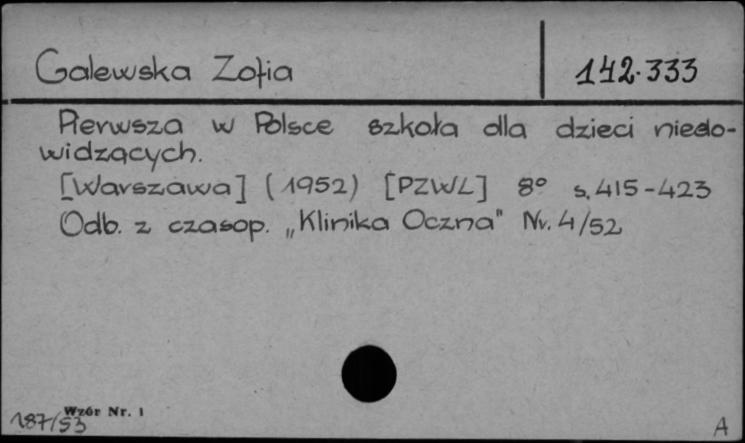 Galewska Zofia
142.333
Pierwsza w Polsce szkoła dla dzieci niedo-
widzących.
[Warszawa] (1952) [PZWL] 8° s. 415-423
Odb. z czasop. „Klinika Oczna" Nr. 4/52
Wzór Nr. 1
187/53
A